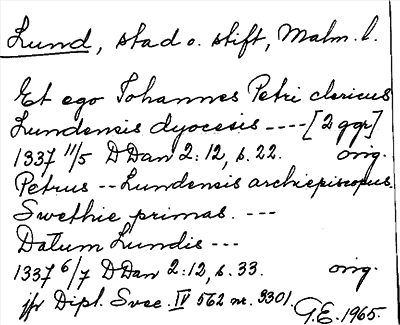 Lund, stad o. stift, Malm. l.
Et ego Johannes Petri clericus
Lundensis dyocesis ---- [2 ggr]
1337 11/5 D Dan 2:12, s. 22. orig.
Petrus -- Lundensis archiepiscopus
Swethie primas. ---
Datum Lundis ---
1337 6/7 D Dan 2:12, s. 33. orig.
jfr Dipl. Svec. IV 562 nr. 3301.
G.E. 1965.